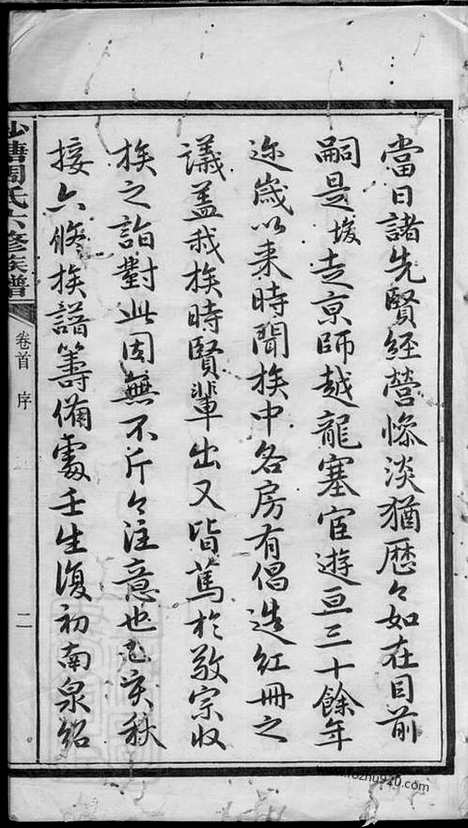 當日諸先賢經營慘淡猶歷々如在目前
嗣是後走京師越龍塞宦遊亘三十餘年
迩歲以來時聞族中各房有倡造紅冊之
議蓋我族時賢輩出又皆篤於敬宗收
族之詣對此固無不斤々注意也乙亥秋
接六修族譜籌備處壬生復初南泉紹
沙塘周氏六修族譜
卷首 序
二